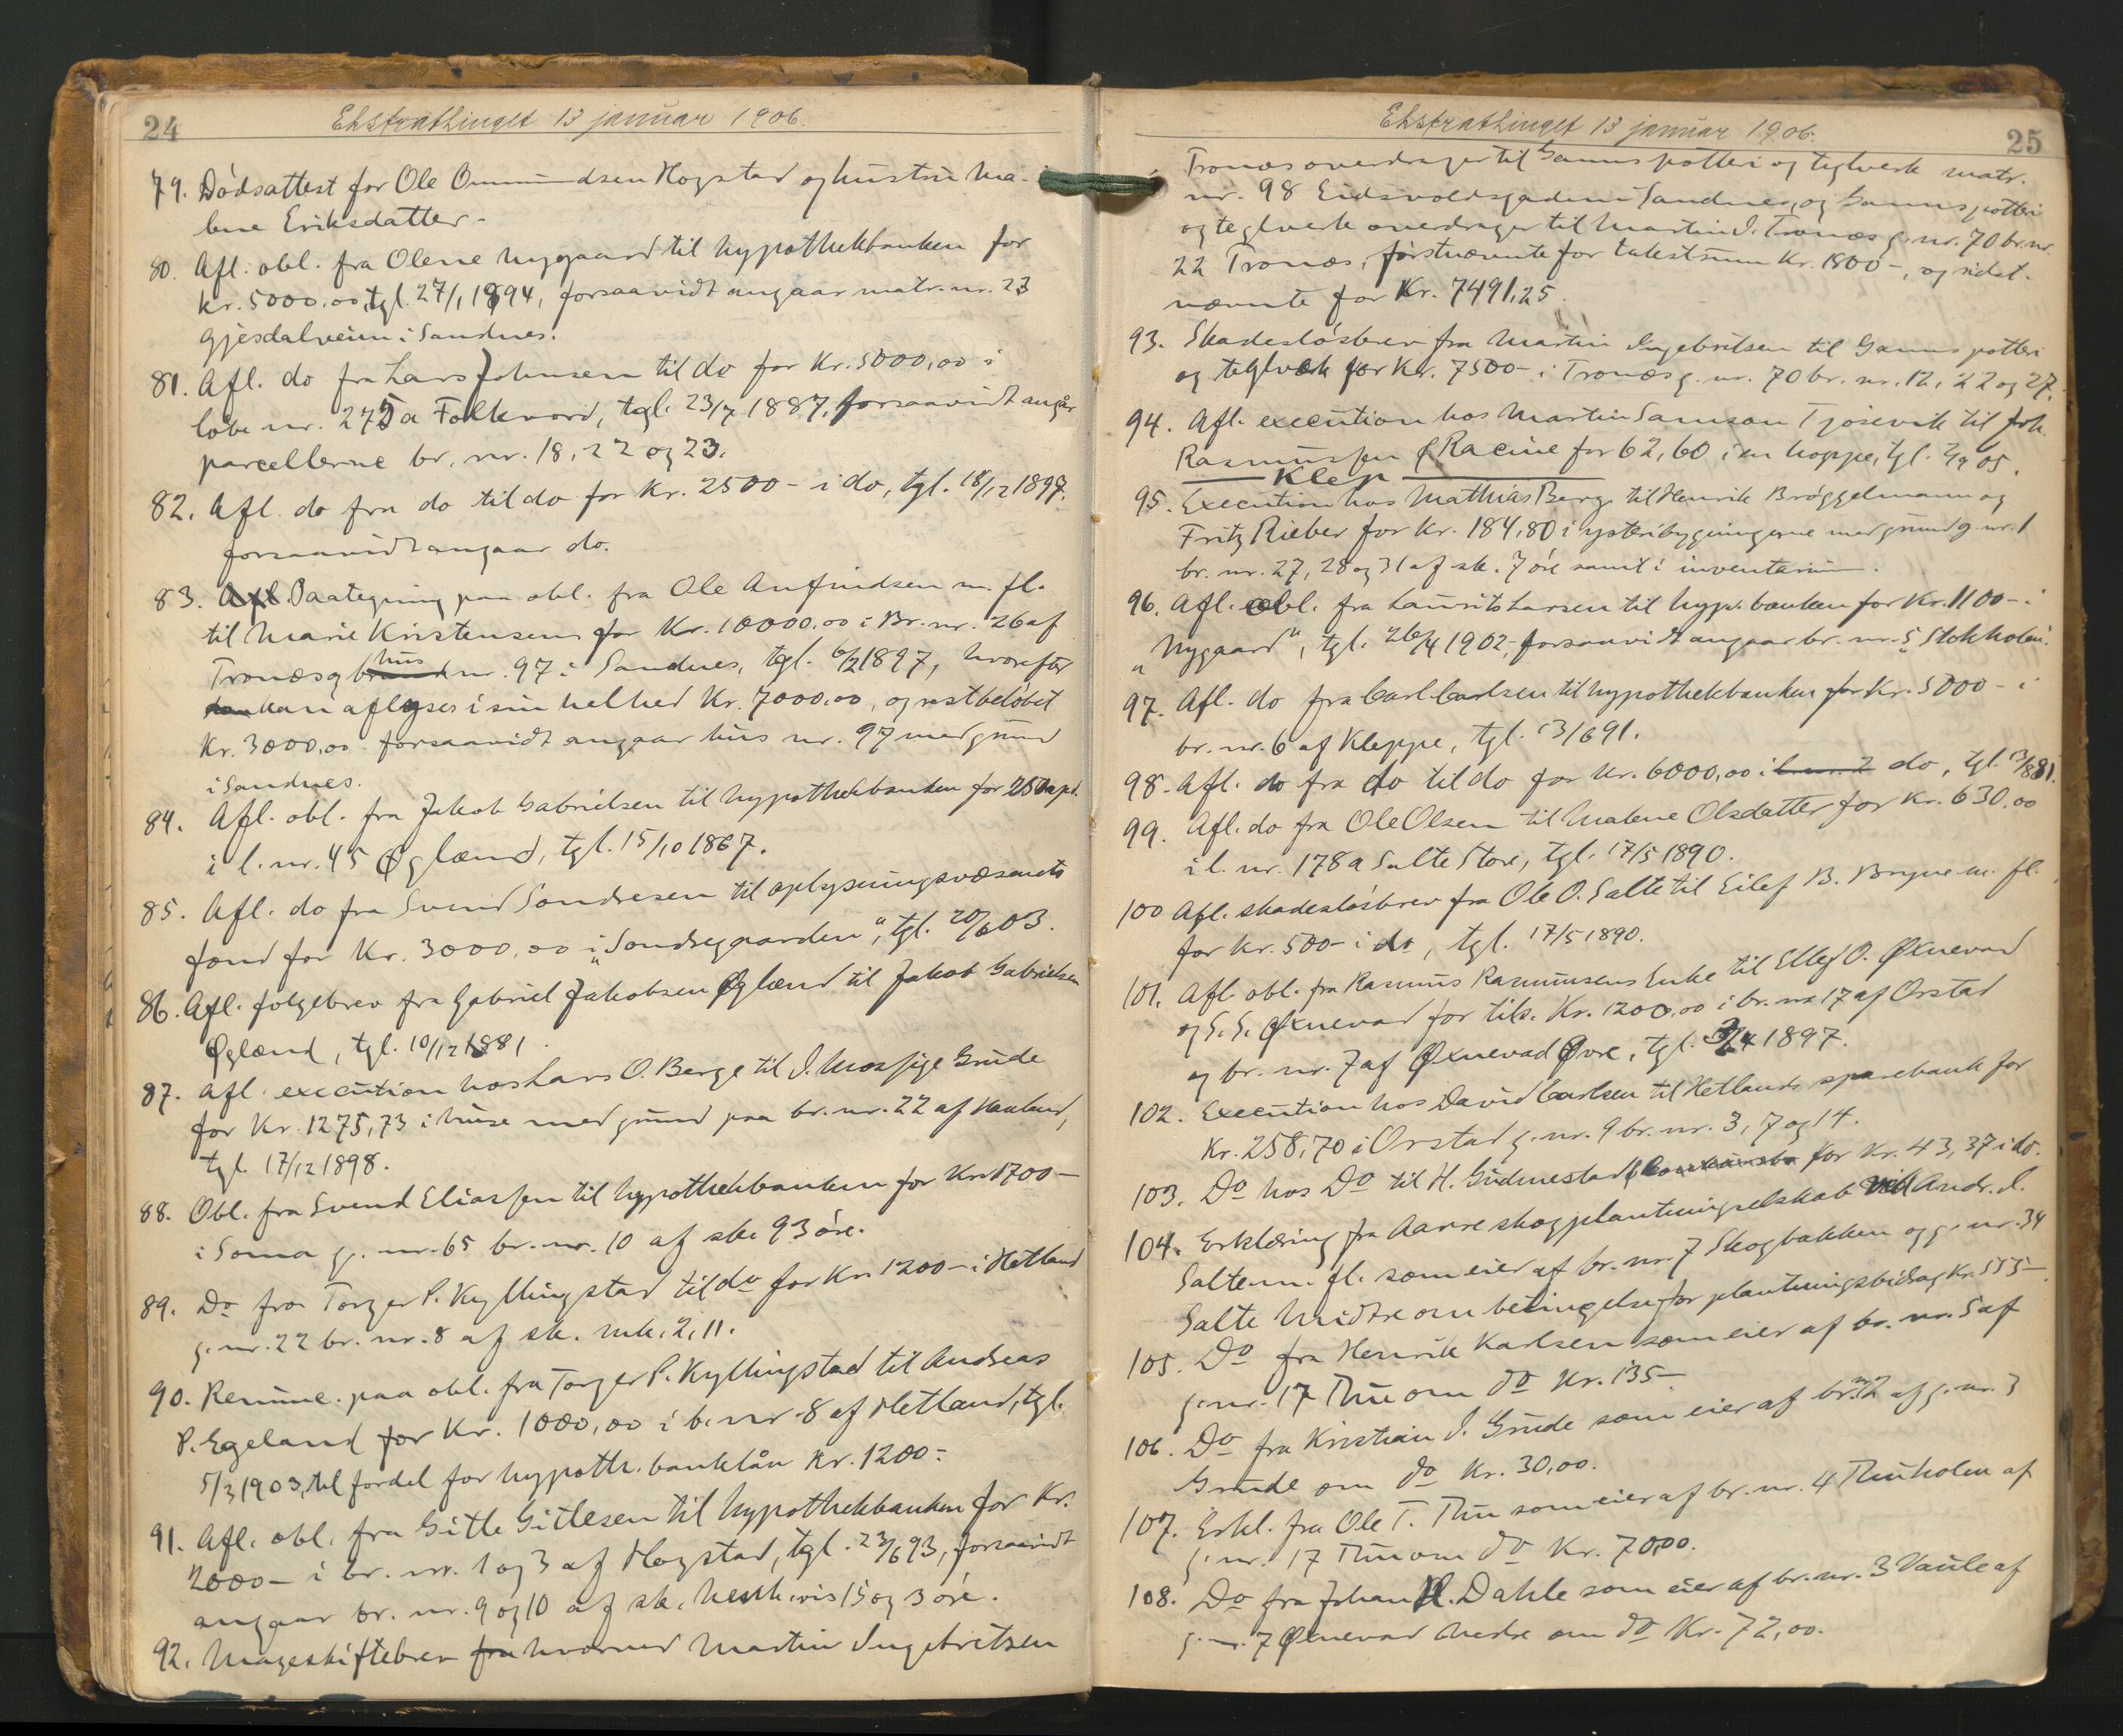 24
Ekstrathinget 13 januar 1906.
79. Dödsattest for Ole Ommundsen Hogstad og hustru Ma-
lene Eriksdatter.
80. Afl. obl. fra Olene Nygaard til hypothekbanken for
kr. 5000,00, tgl. 27/1 1894, forsaavidt angaar matr. nr. 23
Gjesdalveien i Sandnes.
81. Afl. do fra Lars Johnsen til do for Kr. 5000,00 i
löbe nr. 275a Folkvord, tgl. 23/7 1887, forsaavidt angår
parcellerne br. nr. 18, 22 og 23.
82. Afl. do fra do til do for Kr. 2500 - i do, tgl. 18/12 1897.
forsaavidt angaar do.
83. Afl. Paategning paa obl. fra Ole Anfindsen m. fl.
til Marie Kristensen for Kr. 10000,00 i Br. nr. 26 af
Tronæs og hus nr. 97 i Sandnes, tgl. 6/2 1897, hvorefter
kan aflyses i sin helhed Kr. 7000,00, og restbelöbet
Kr. 3000,00 forsaavidt angaar hus nr. 97 med grund
i Sandnes.
84. Afl. obl. fra Jakob Gabrielsen til hypothekbanken for 250 spd.
i l. nr. 45 Øglænd, tgl. 15/10 1867.
85. Afl. do fra Svend Sondresen til oplysningsvæsenets
fond for Kr. 3000,00 i „Sondregaarden", tgl. 20/6 03.
86. Afl. fölgebrev fra Gabriel Jakobsen Øglænd til Jakob Gabrielsen
Øglænd, tgl. 10/12 1881.
87. Afl. execution hos Lars O. Berge til J. Mossige Grude
for Kr. 1275,73 i huse med grund paa br. nr. 22 af Hauland,
tgl. 17/12 1898.
88. Obl. fra Svend Eliassen til hypothekbanken for Kr. 1700 -
i Soma g. nr. 65 br. nr. 10 af sk. 93 öre.
89. Do fra Torger P. Kyllingstad til do for Kr. 1200 - i Hetland
g. nr. 22 br. nr. 8 af sk. mk. 2,11.
90. Renunc. paa obl. fra Torger P. Kyllingstad til Andreas
P. Egeland for Kr. 1000,00 i b. nr. 8 af Hetland, tgl.
5/3 1903, til fordel for hypoth. banklån Kr. 1200-
91. Afl. obl. fra Gitle Gitlesen til hypothekbanken for Kr.
2000 - i br. nr. 1 og 3 af Hogstad, tgl. 23/6 93, forsaavidt
angaar br. nr. 9 og 10 af sk. hensh.vis 15 og 3 öre.
92. Mageskiftebrev fra hvorved Martin Ingebretsen
25
Ekstrathinget 13 januar 1906.
Tronæs overdrager til Ganns potteri og teglverk matr.
nr. 98 Eidsvoldsgaden i Sandnes, og Ganns potteri
og teglverk overdrager til Martin I. Tronæs g. nr. 70 br. nr.
22 Tronæs, förstnævnte for takstsum Kr. 1800 -, og sidst-
nævnte for Kr. 7491,25.
93. Skadeslösbrev fra Martin Ingebretsen til Ganns potteri
og teglverk for Kr. 7500 - i Tronæs g. nr. 70 br. nr. 12, 22 og 27.
94. Afl. execution hos Martin Samson Tjösevik til Joh.
Rasmussen & Racine for 62,60 i en hoppe, tgl. 2/9 05.
Klep
95. Execution hos Mathias Berge til Henrik Bröggelmann og
Fritz Rieber for Kr. 184,80 i ysteribygningerne med grund g. nr. 1
br. nr. 27, 28 og 31 af sk. 7 öre samt i inventarium.
96. Afl. obl. fra Laurits Larsen til hyp. banken for Kr. 1100 - i
„Nygaard", tgl. 26/4 1902, forsaavidt angaar br. nr. 5 Stokholm.
97. Afl. do fra Carl Carlsen til hypothekbanken for Kr. 5000 - i
br. nr. 6 af Kleppe, tgl. 13/6 91.
98. Afl. do fra do til do for Kr. 6000,00 i do, tgl. 13/8 81.
99. Afl. do fra Ole Olsen til Malene Olsdatter for Kr. 630,00
i l. nr. 178a Salte Store, tgl. 17/5 1890.
100 Afl. skadeslösbrev fra Ole O. Salte til Eilef B. Bryne m. fl.
for Kr. 500 - i do, tgl. 17/5 1890.
101. Afl. obl. fra Rasmus Rasmussens Enke til Ellef O. Øxnevad
og S. S. Øxnevad for tils. Kr. 1200,00 i br. nr. 17 af Orstad
og br. nr. 7 af Øxnevad Øvre, tgl. 1897.
102. Execution hos David Carlsen til Hetlands sparebank for
Kr. 258,70 i Orstad g. nr. 9 br. nr. 3, 7 og 14.
103. Do hos Do til H. Gudmestads for Kr. 43,37 i do.
104. Erklæring fra Aarre skogplantningselskab ved Andr. I.
Salte m. fl. som eier af br. nr. 7 Skogbakken og g. nr. 34
Salte Midtre om betingelse for plantningsbidrag Kr. 555 -.
105. Do fra Henrik Karlsen som eier af br. nr. 5 af
g. nr. 17 Thu om do Kr. 135 -
106. Do fra Kristian I. Grude som eier af br. nr. 12 af g. nr. 3
Grude om do Kr. 30,00.
107. Erkl. fra Ole T. Thu som eier af br. nr. 4 Thuholen af
g. nr. 17 Thu om do Kr. 70,00.
108. Do fra Johan H. Dahle som eier af br. nr. 3 Vaule af
g. nr. 7 Øxnevad Nedre om do Kr. 72,00.